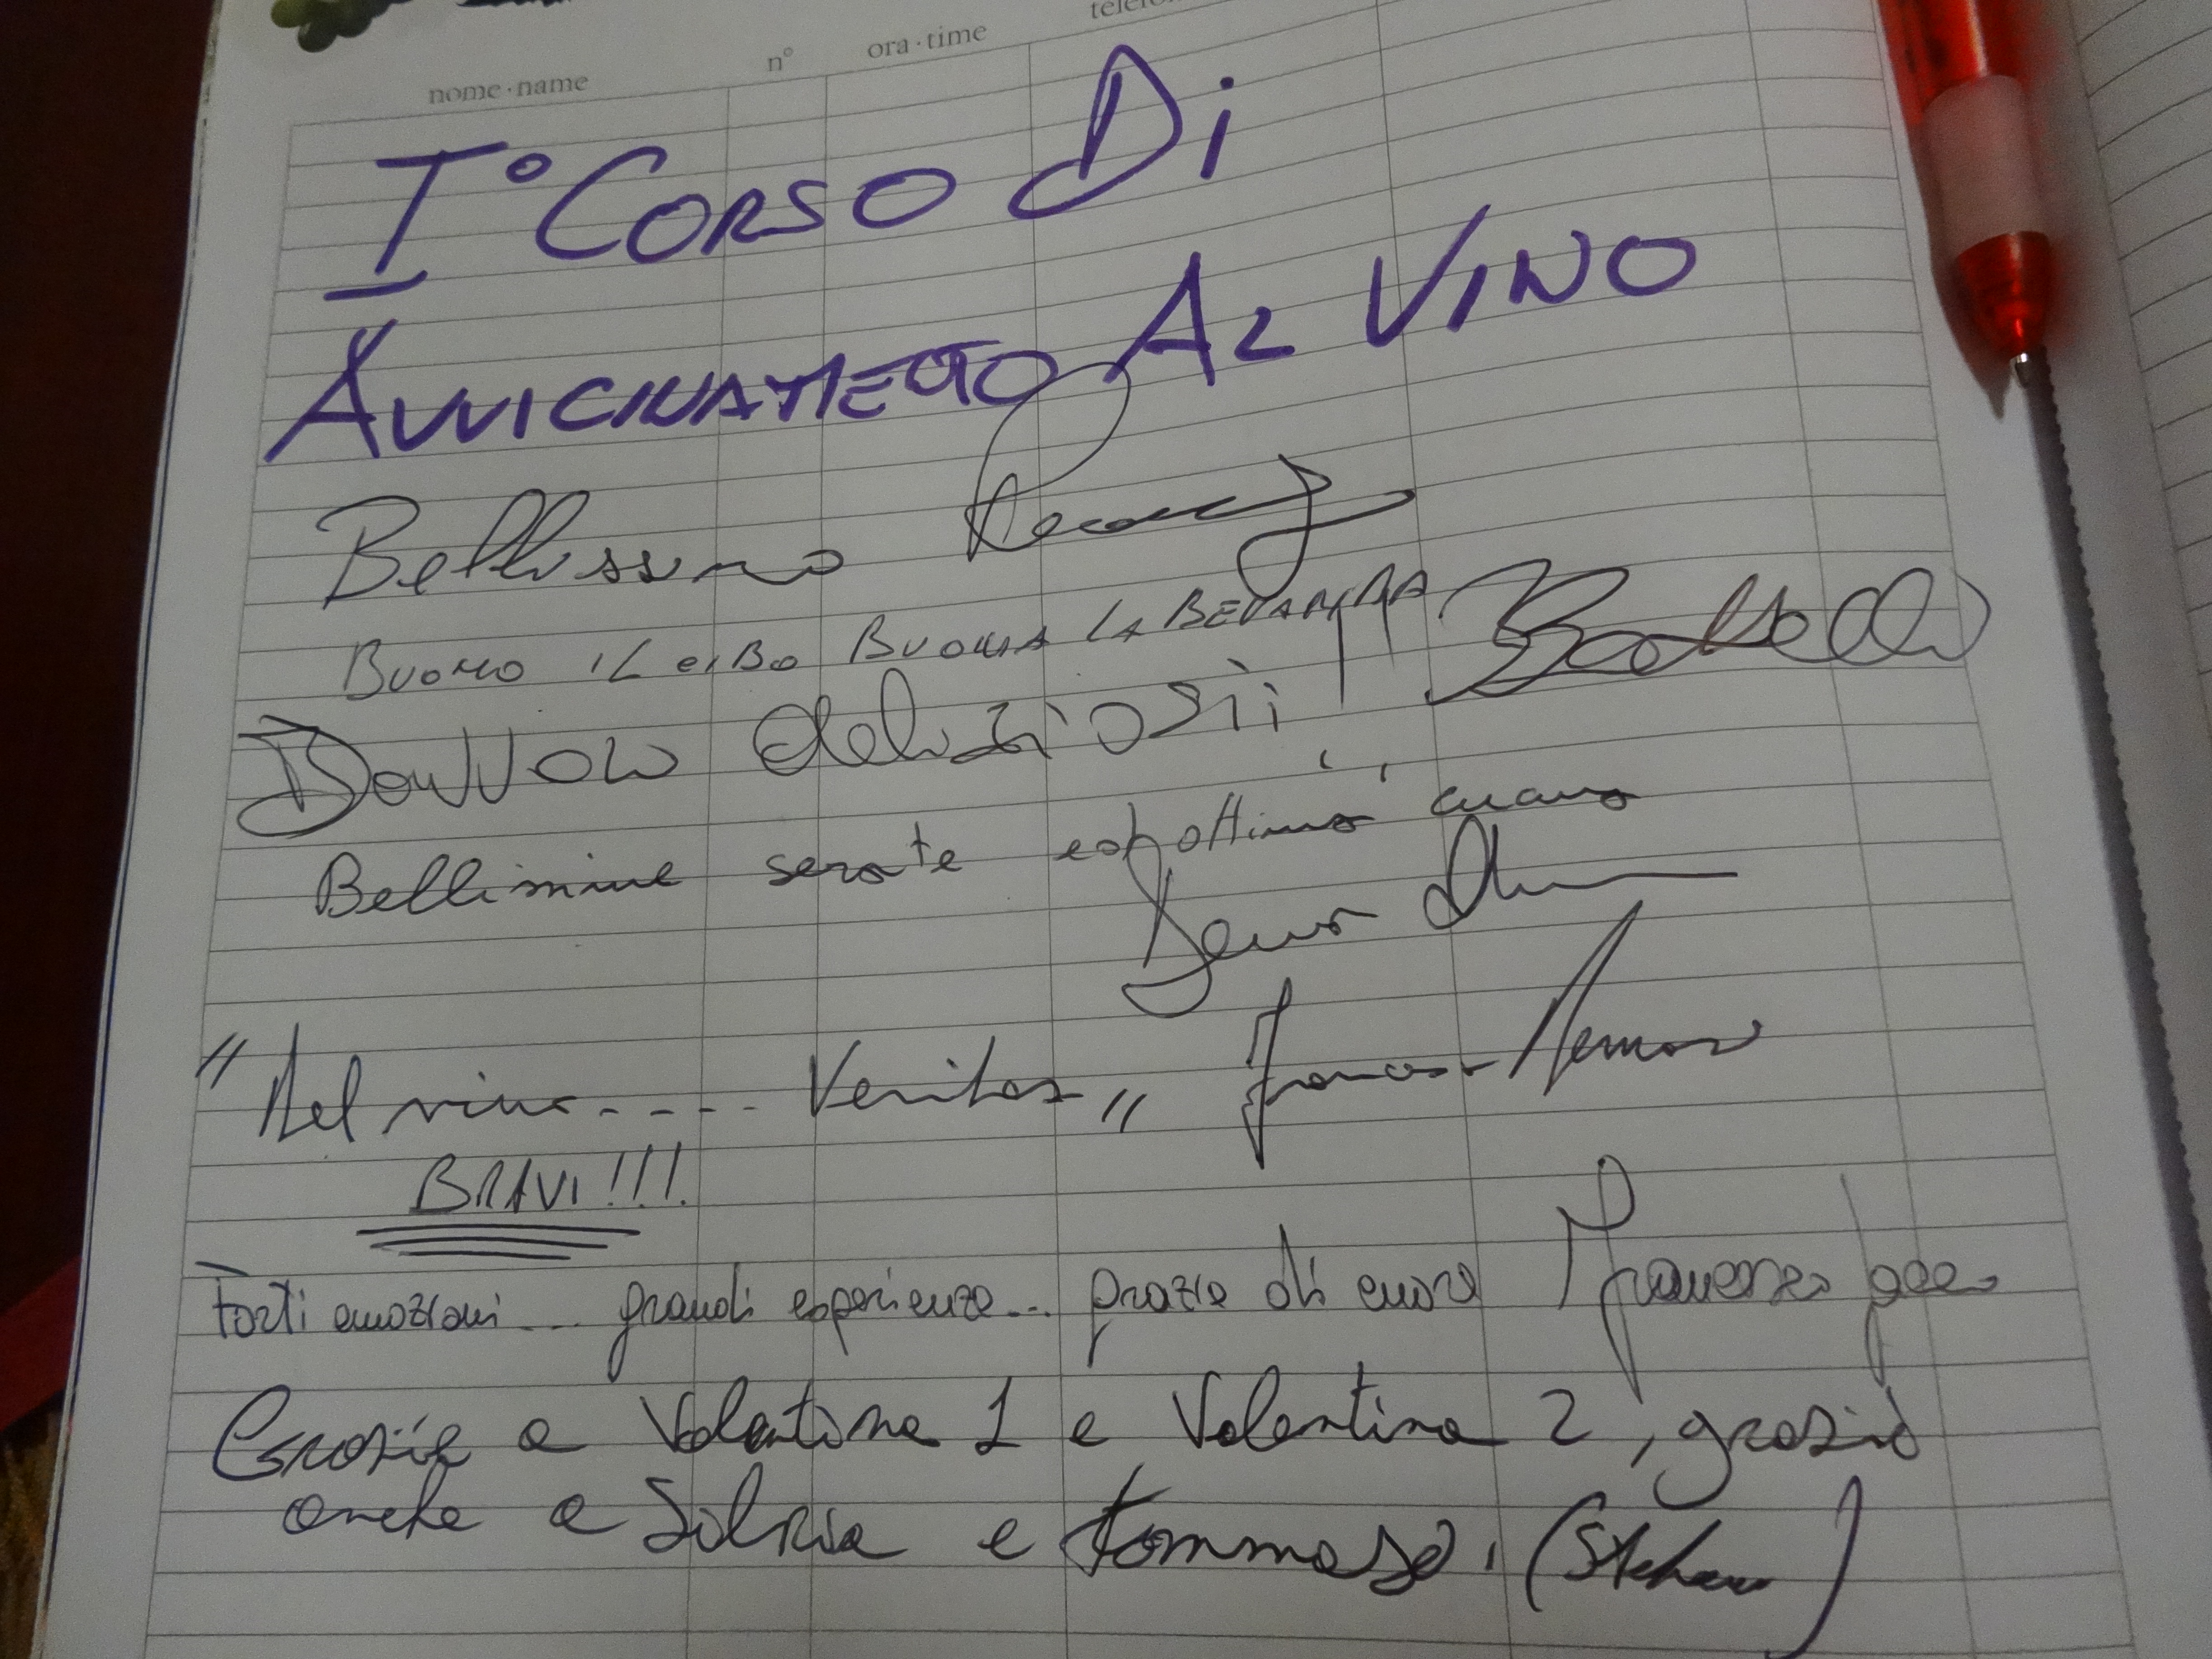 nome·name n° ora·time
I° CORSO Di
AVVICINAMETO AL VINO
Bellissimo
BUONO IL CIBO BUONA LA BEVANDA
Davvero deliziosi!
Bellissime serate ed ottimo
"Nel vino..... Veritas"
BRAVI!!!
Forti emozioni... grandi esperienze... grazie di cuore
Grazie a Valentina 1 e Valentina 2, grazie
anche a Silvia e Tommaso. (Stefano)